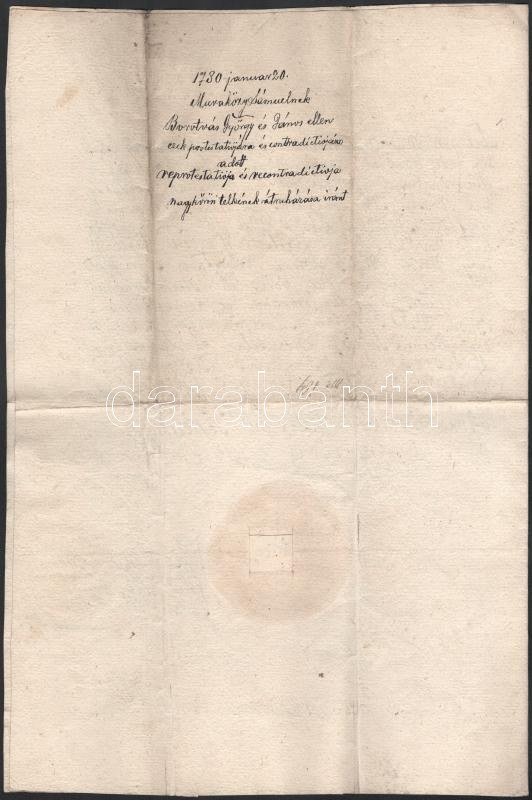 1730 januar 20.
Muraközy Sámuelnek
Borotvás György és János ellen
ezek postestatiojára és contradictiojára
adott
reprotestatioja és recontradictioja
nagykőrösi telkének átruházása iránt
darabanth